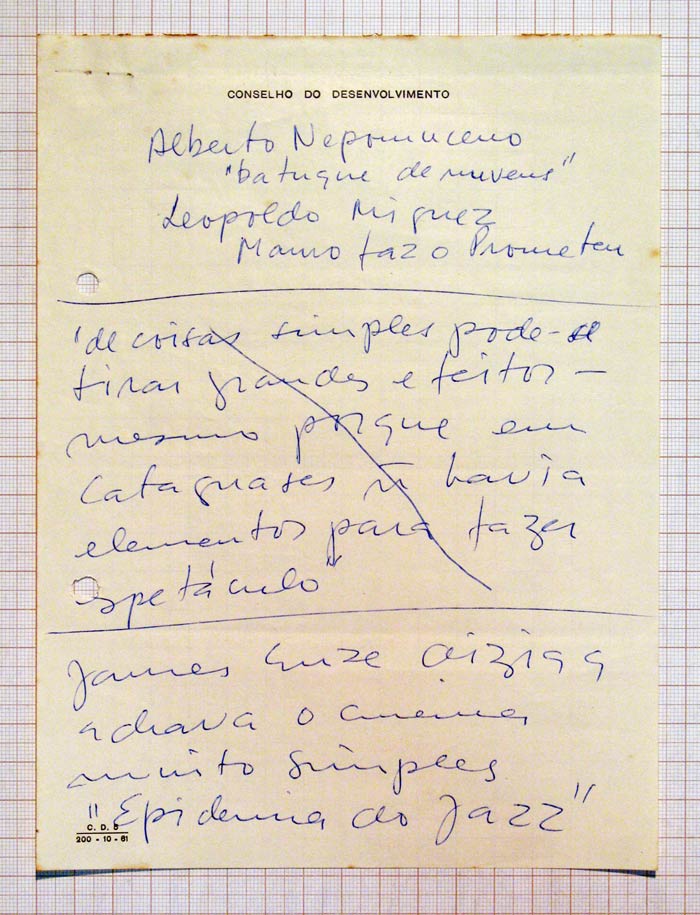 CONSELHO DO DESENVOLVIMENTO
Alberto Nepomuceno
"batuque de nuvens"
Leopoldo Miguez
Mauro faz o Prometeu
"de coisas simples pode-se
tirar grandes efeitos –
mesmo porque em
Cataguases ñ havia
elementos para fazer
espetáculo"
James Cruze
achava o cinema
muito simples
"Epidemia do Jazz"
C. D. 5
200 - 10 - 61